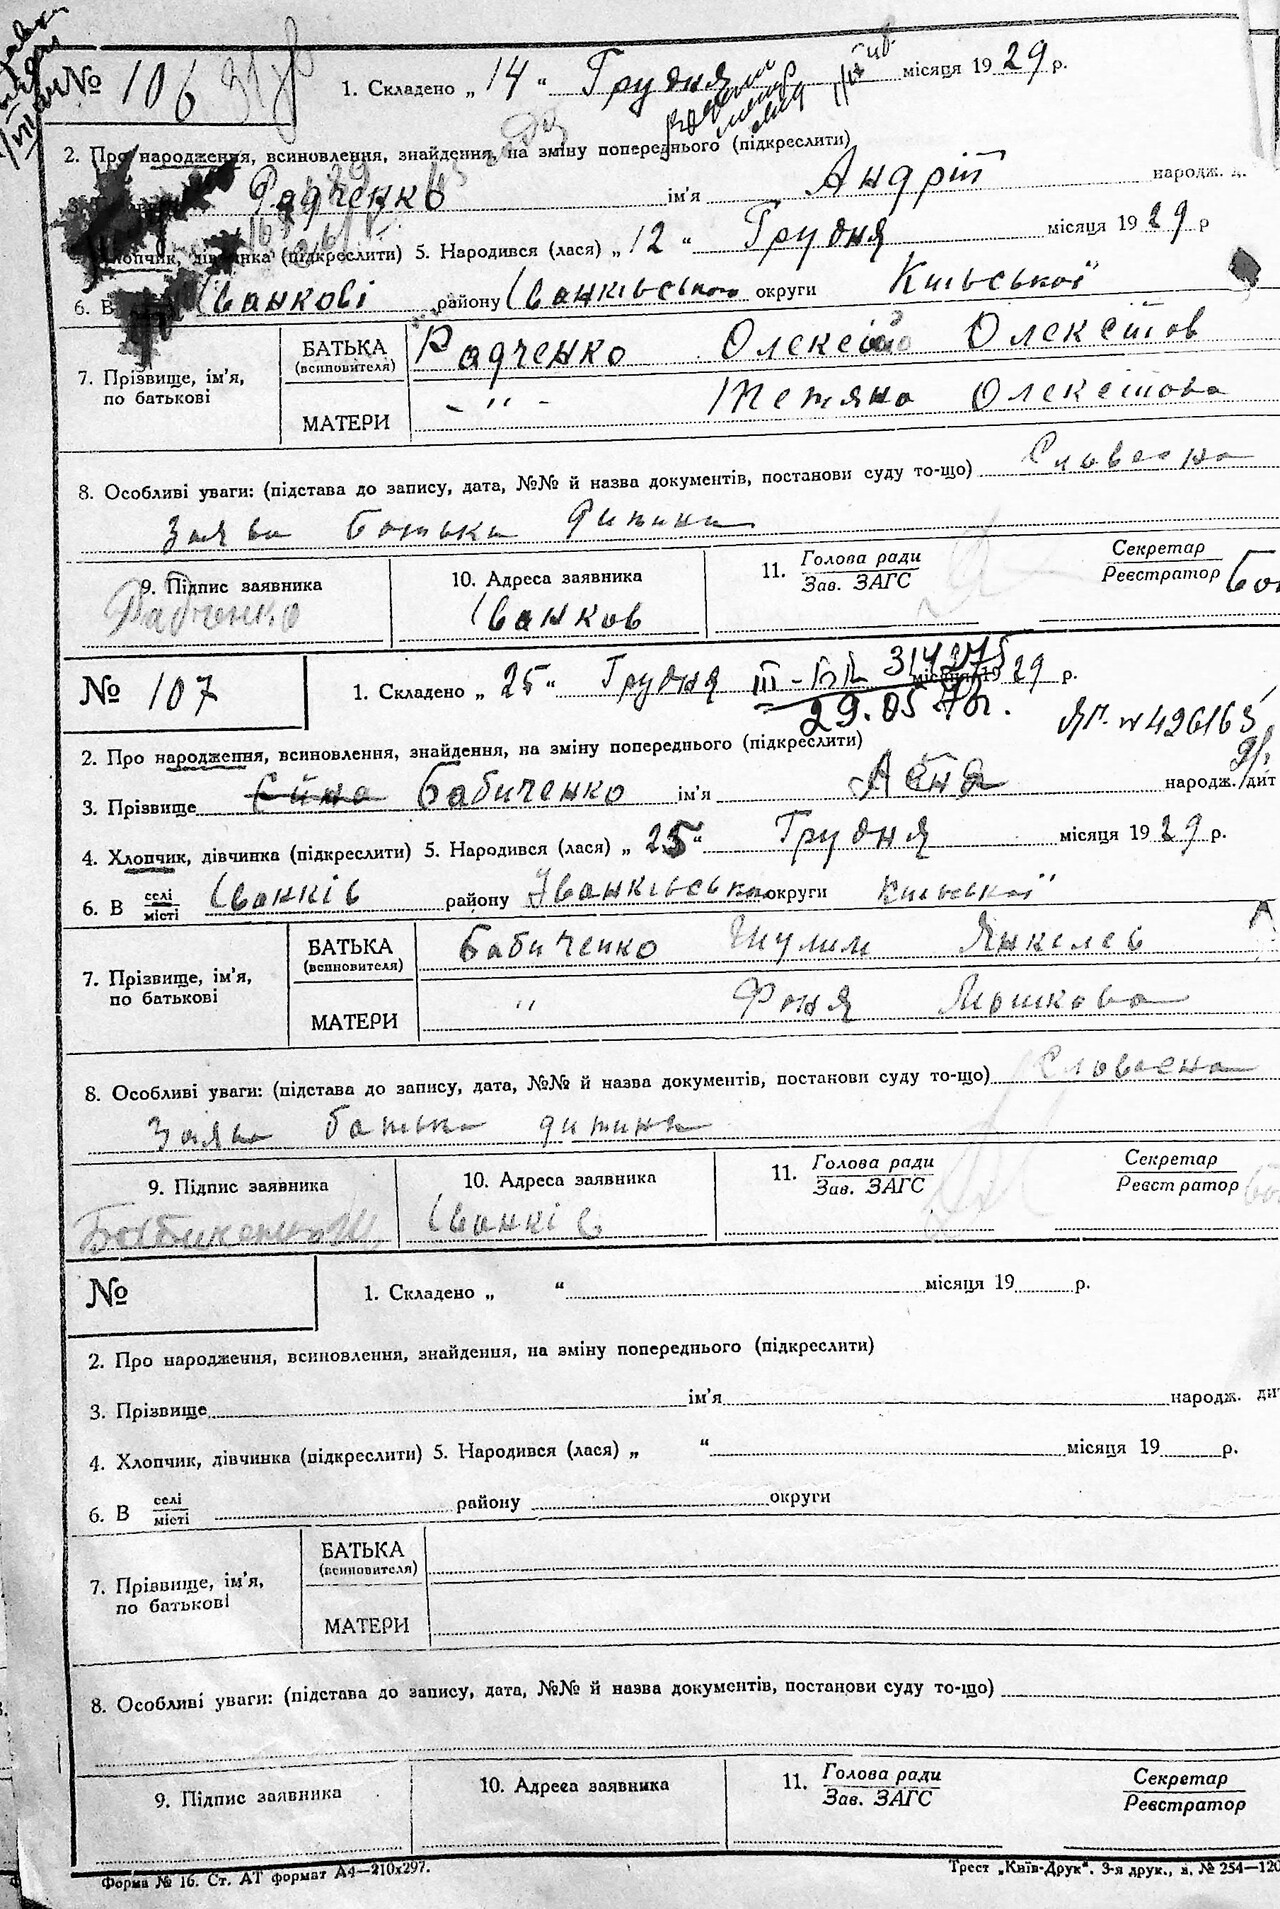 № 106 1. Складено „ 14 “ Грудня місяця 1929 р.
2. Про народження, всиновлення, знайдення, на зміну попереднього (підкреслити)
Радченко ім'я Андрій народж. д.
хлопчик, дівчинка (підкреслити) 5. Народився (лася) „ 12 “ Грудня місяця 1929 р
6. В Іванкові району Іванківського округи Київської
7. Прізвище, ім'я, по батькові
БАТЬКА (всиновителя) Радченко Олексій Олексійов
МАТЕРИ - " - Тетяна Олексійова
8. Особливі уваги: (підстава до запису, дата, №№ й назва документів, постанови суду то-що) Словесна
Заява батька дитини
9. Підпис заявника 10. Адреса заявника 11. Голова ради Секретар
Зав. ЗАГС Реєстратор
Радченко Іванков
№ 107 1. Складено „ 25 “ Грудня місяця 1929 р.
III-БК 314275
29.05.76г.
№ 426163
2. Про народження, всиновлення, знайдення, на зміну попереднього (підкреслити)
3. Прізвище Бабиченко ім'я народж. дит
4. Хлопчик, дівчинка (підкреслити) 5. Народився (лася) „ 25 “ Грудня місяця 1929 р.
6. В селі місті Іванків району Іванківського округи Київської
7. Прізвище, ім'я, по батькові
БАТЬКА (всиновителя) Бабиченко Шулим Янкелев
МАТЕРИ " Фаня Мошкова
8. Особливі уваги: (підстава до запису, дата, №№ й назва документів, постанови суду то-що) Словесна
Заява батька дитини
9. Підпис заявника 10. Адреса заявника 11. Голова ради Секретар
Зав. ЗАГС Реєстратор
Іванків
№ 1. Складено „ “ місяця 19 р.
2. Про народження, всиновлення, знайдення, на зміну попереднього (підкреслити)
3. Прізвище ім'я народж. дит
4. Хлопчик, дівчинка (підкреслити) 5. Народився (лася) „ “ місяця 19 р.
6. В селі місті району округи
7. Прізвище, ім'я, по батькові
БАТЬКА (всиновителя)
МАТЕРИ
8. Особливі уваги: (підстава до запису, дата, №№ й назва документів, постанови суду то-що)
9. Підпис заявника 10. Адреса заявника 11. Голова ради Секретар
Зав. ЗАГС Реєстратор
Форма № 16. Ст. АТ формат А4—210х297. Трест „Київ-Друк“. 3-я друк., з. № 254—120